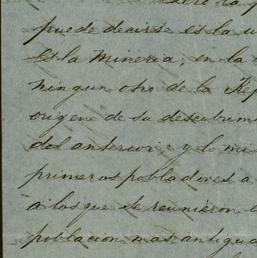 puede decirse es la u
Es la Mineria, en la
ningun otro de la Rep
origen de su descubrim
del anterior, y lo mi
primeros pobladores a
a los que se reunieron
poblacion mas antigua